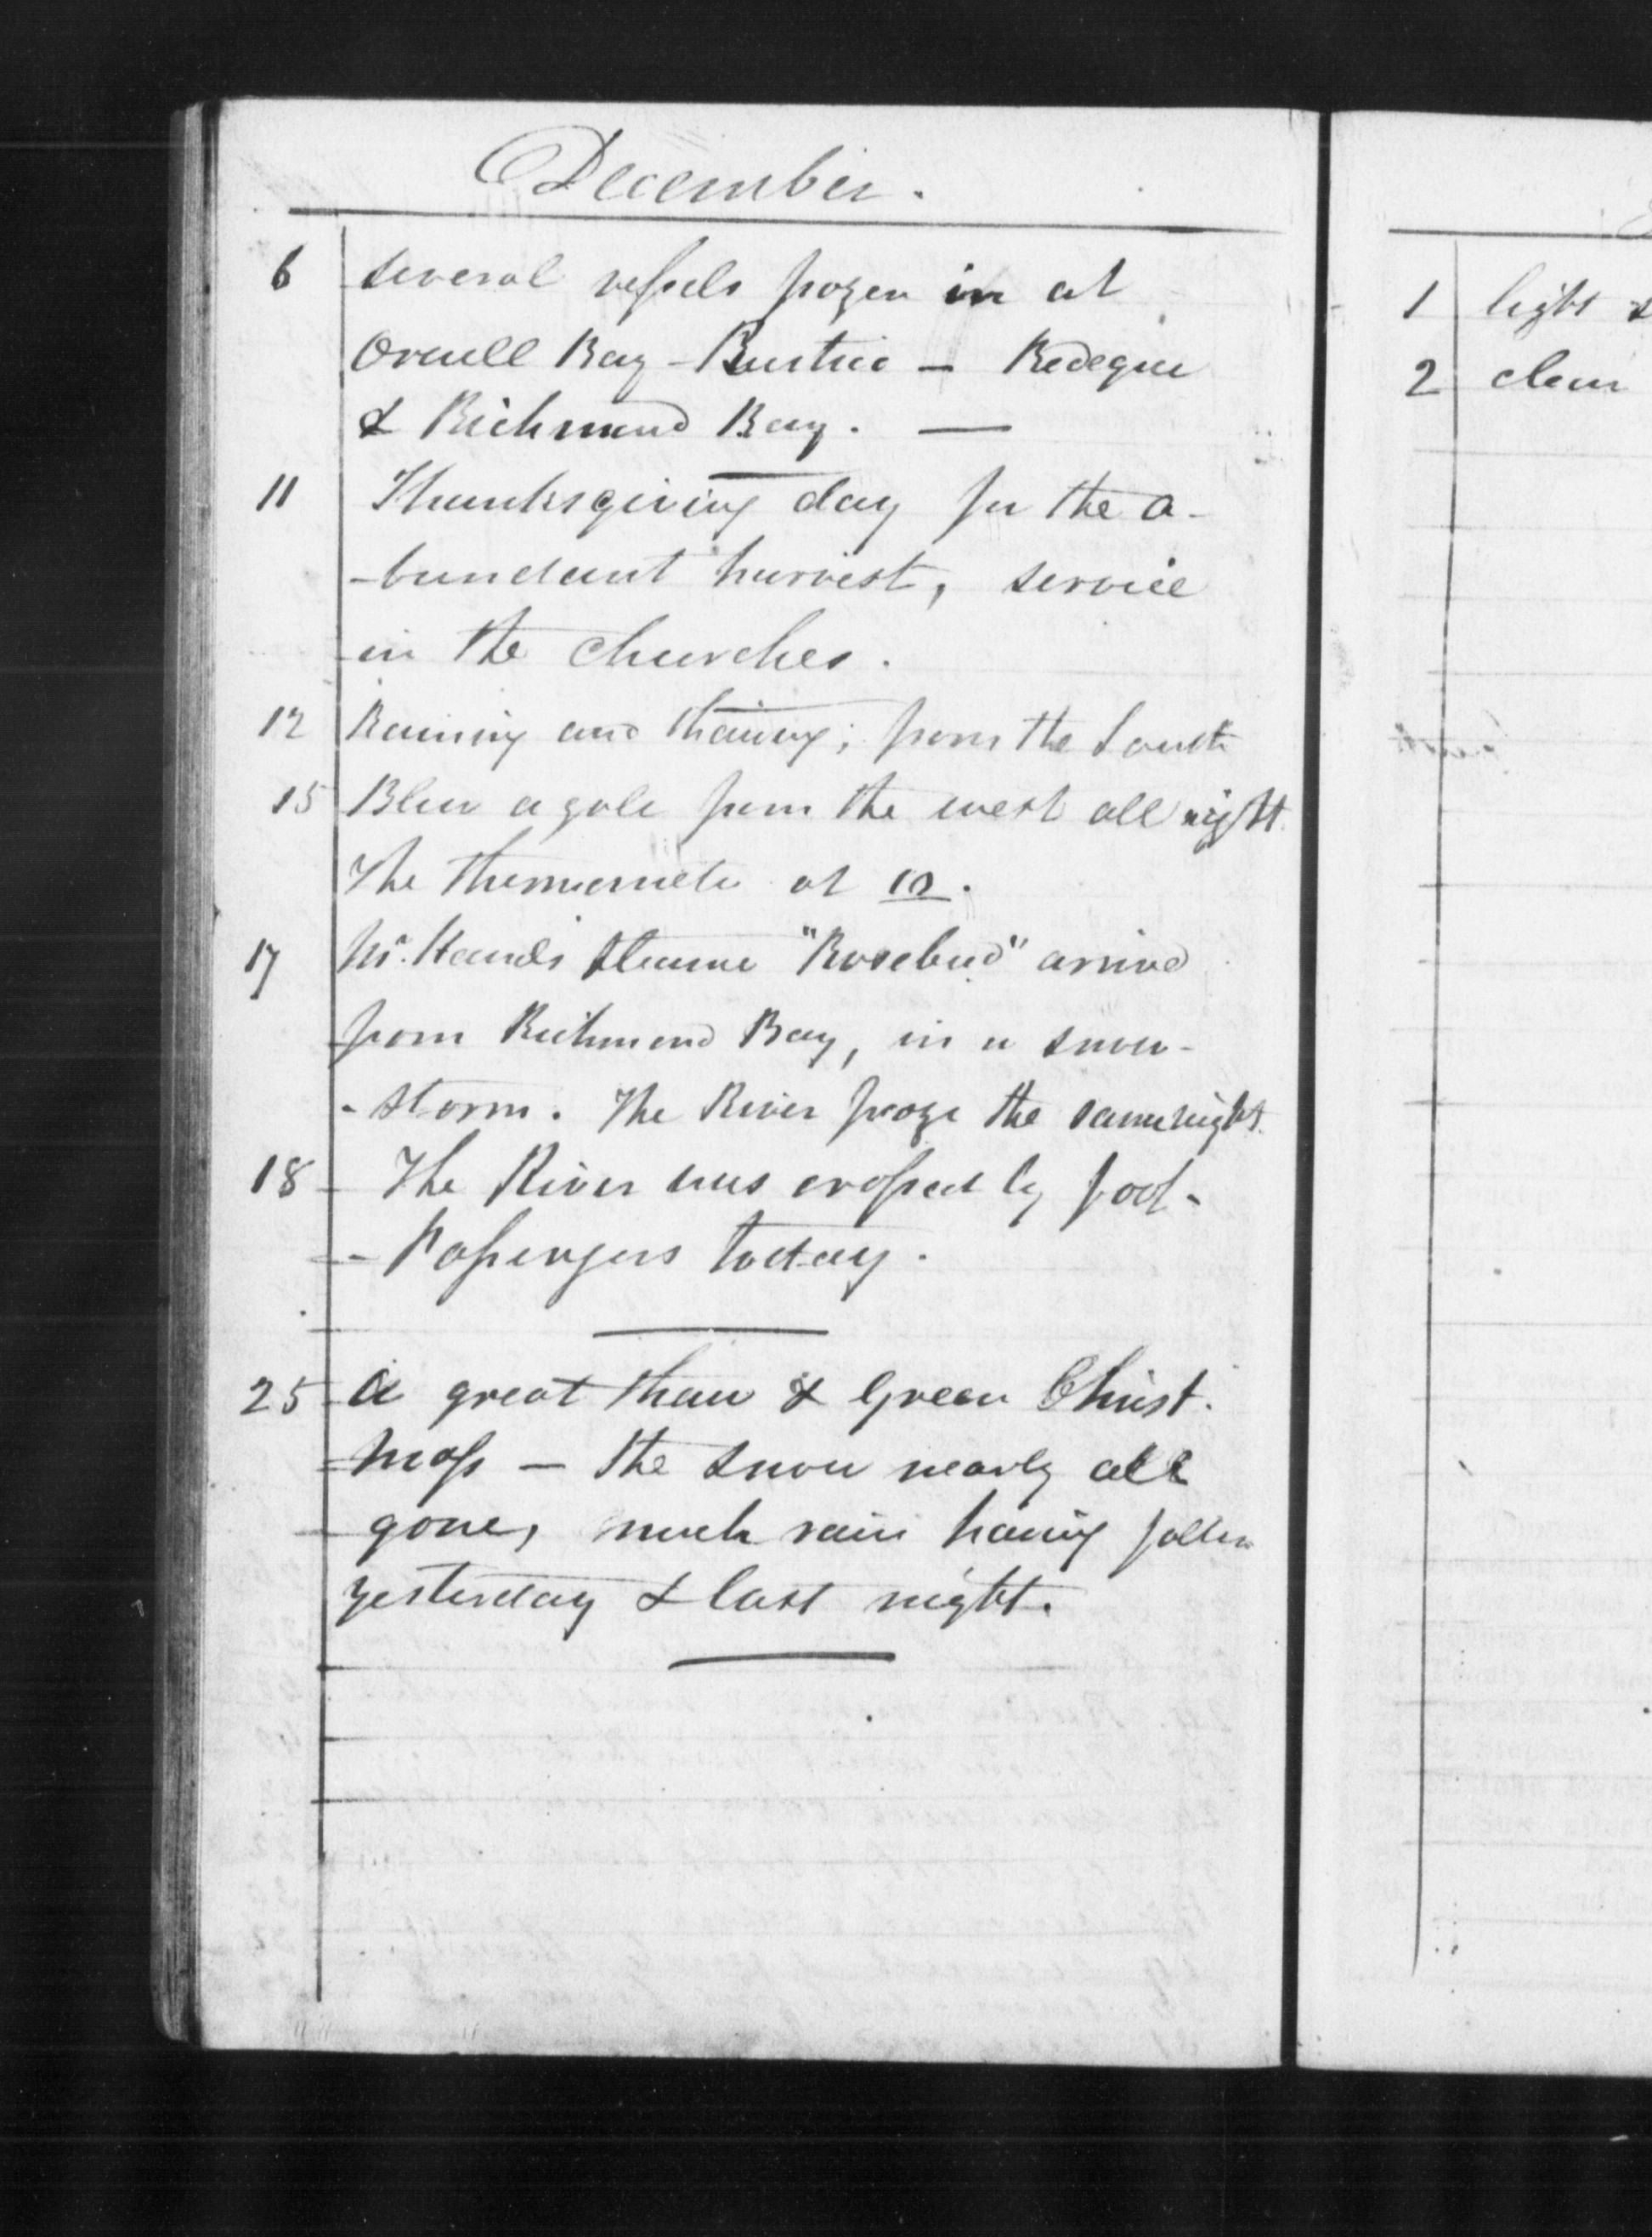 December.
6 several vessels frozen in at
Orwell Bay - Rustico - Bedeque
& Richmond Bay. —
11 Thanksgiving day for the a-
-bundant harvest, service
in the churches.
12 Raining and thawing; from the South
15 Blew a gale from the west all night.
The thermometer at 10.
17 Mr. Steamer "Rosebud" arrived
from Richmond Bay, in a snow-
-storm. The River froze the same night.
18 The River was crossed by foot-
-Passengers today.
25 A great thaw & Green Christ-
mass — the snow nearly all
gone, much rain having fallen
yesterday & last night.
1 light
2 clear